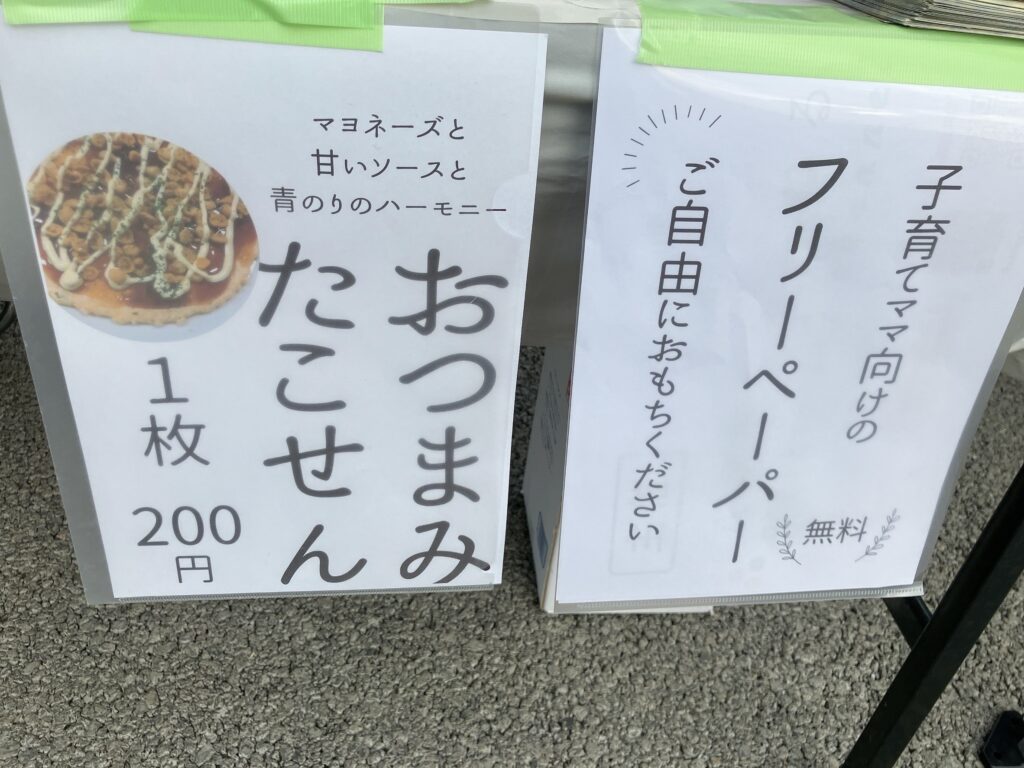 マヨネーズと
甘いソースと
青のりのハーモニー
おつまみ
たこせん
1枚
200
円
子育てママ向けの
フリーペーパー
無料
ご自由におもちください